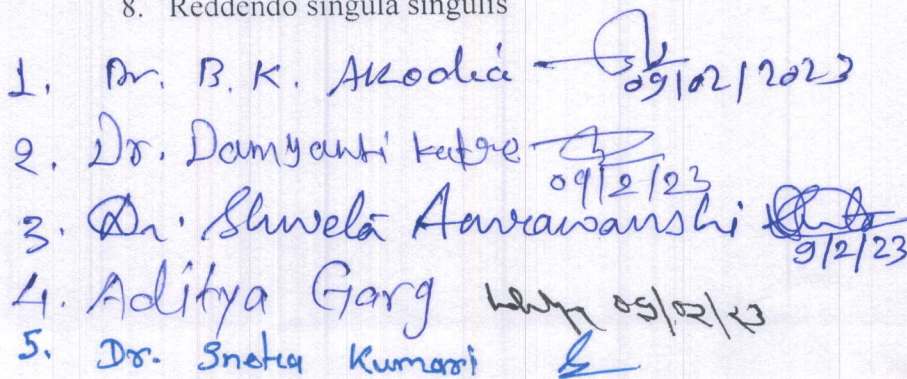 8. Reddendo singula singulis
1. Dr. B. K. Akodia 09/02/2023
2. Dr. Damyanti Katre 09/2/23
3. Dr. Shweta 9/2/23
4. Aditya Garg 09/02/23
5. Dr. Sneha Kumari